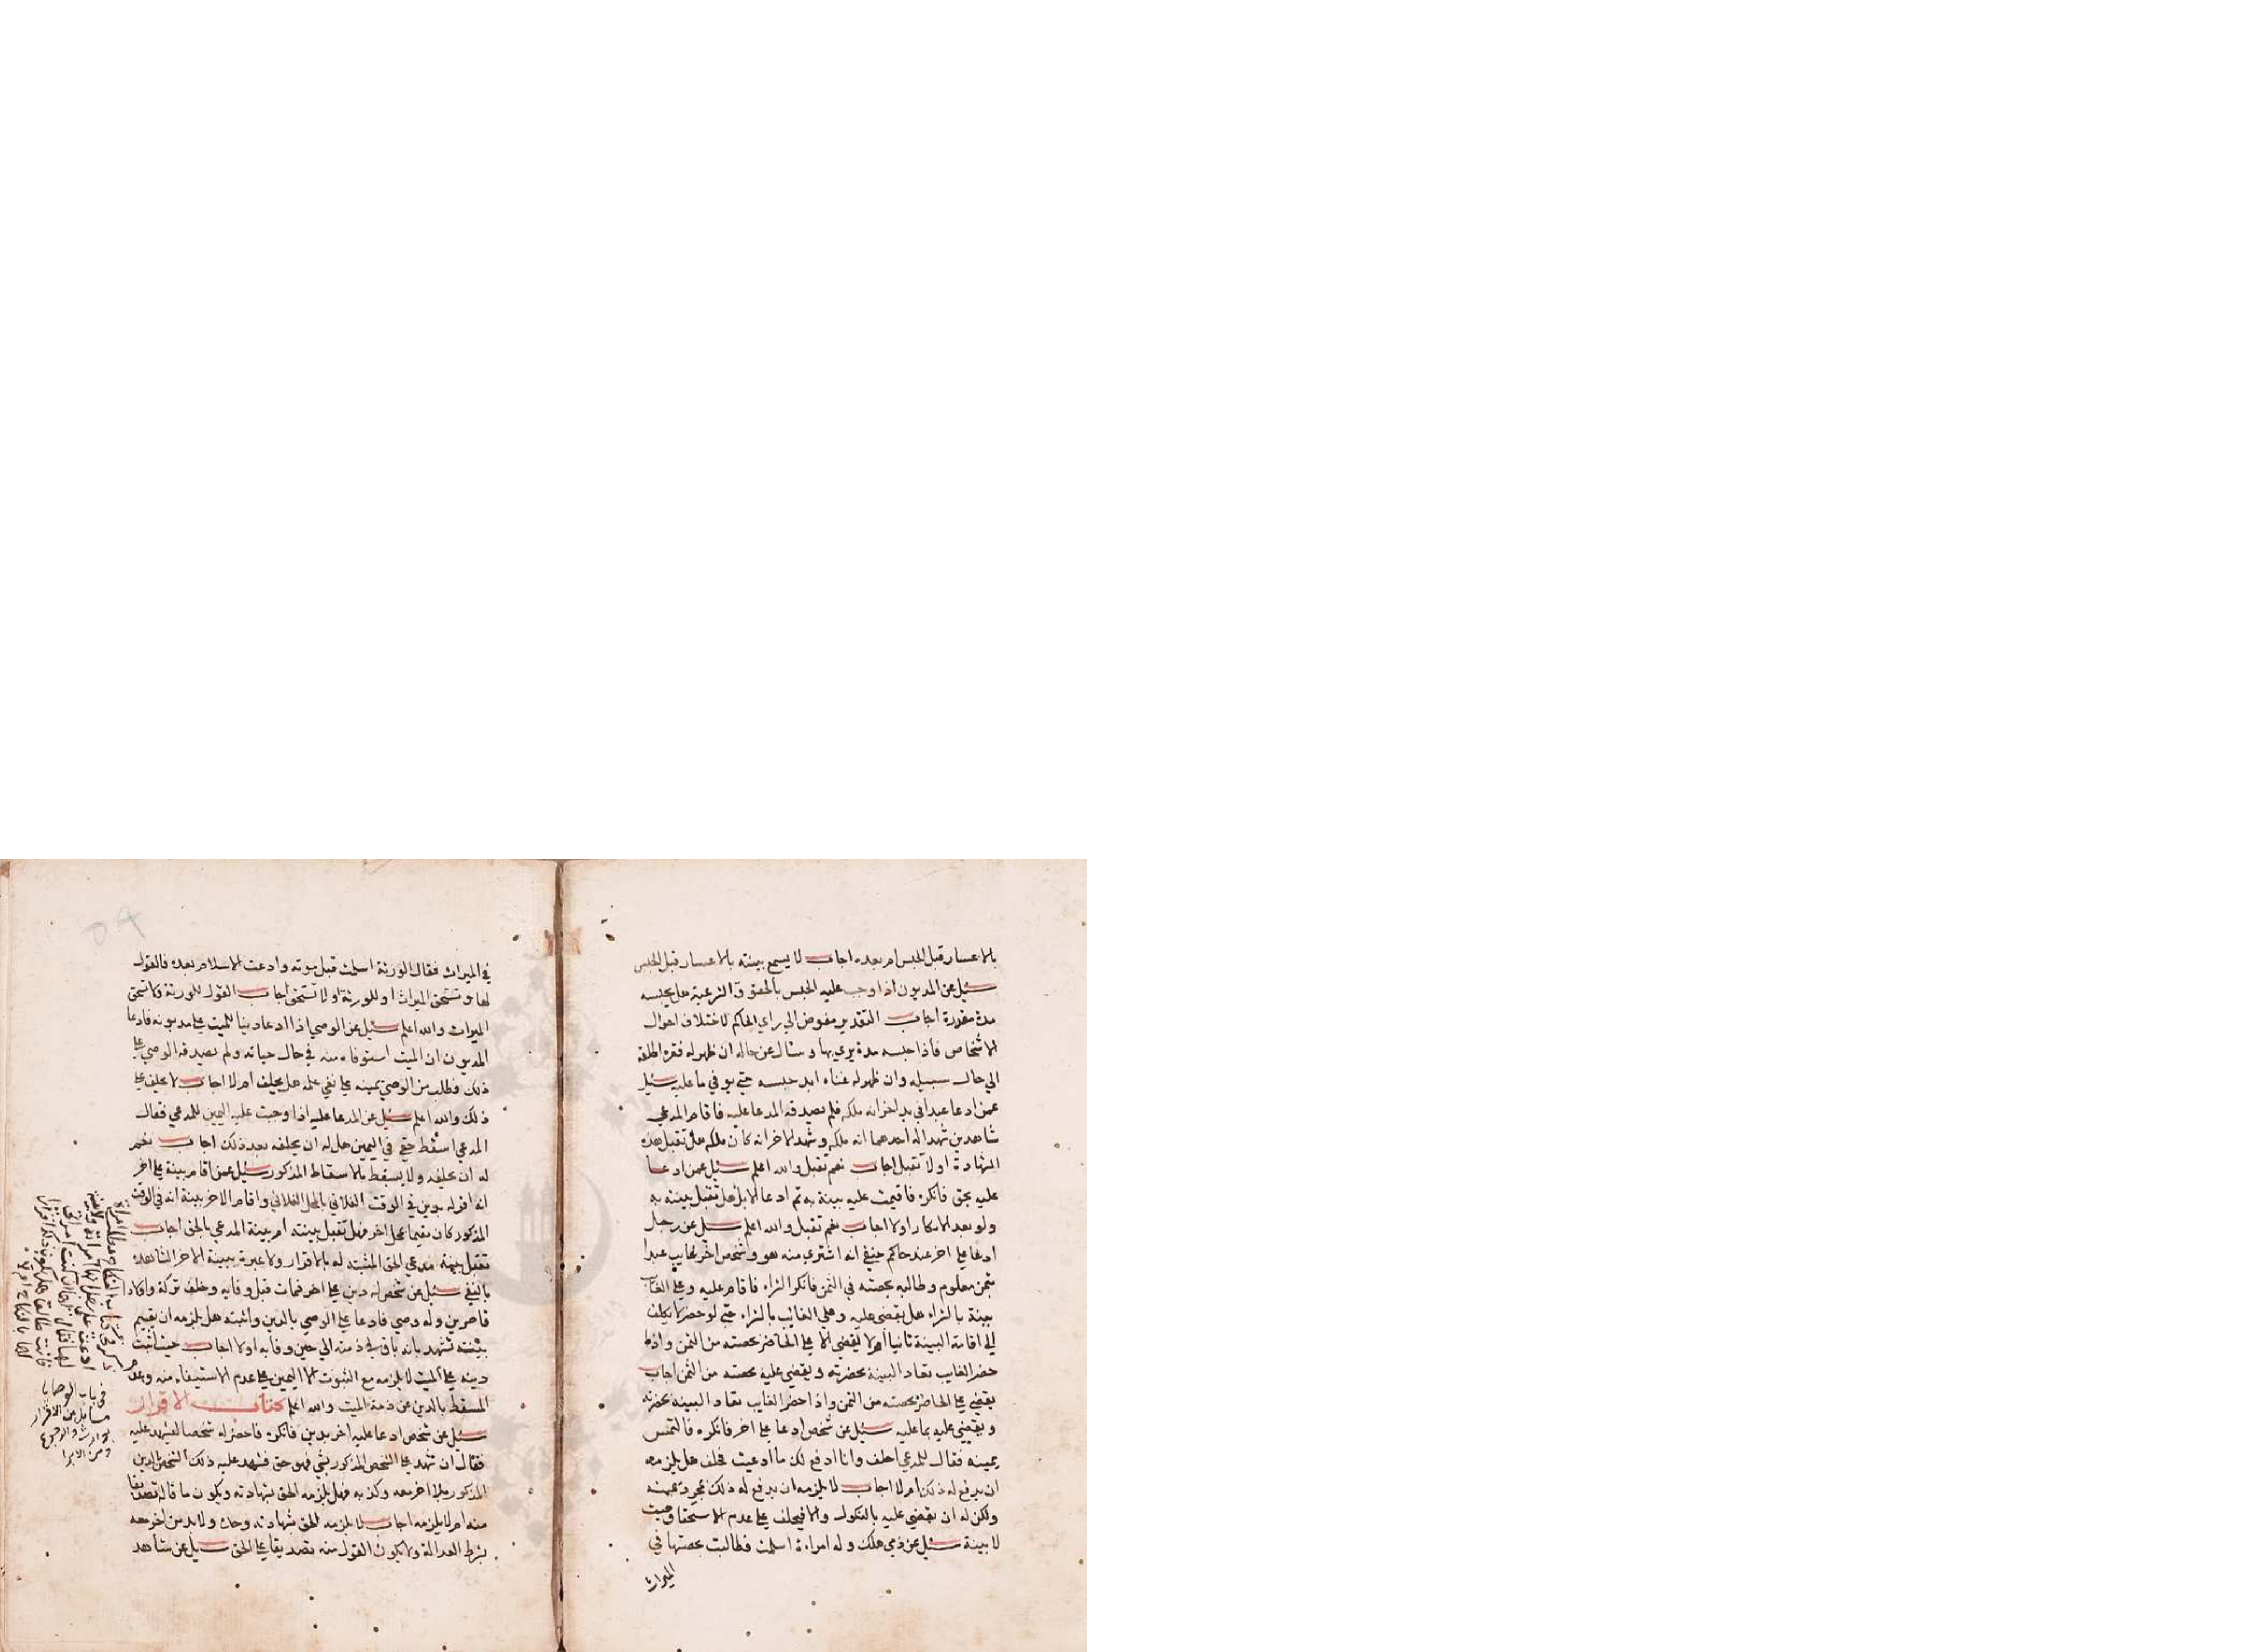 بالاعسار قبل الحبس ام بعده اجاب لا يسمع بينته بالاعسار قبل الحبس
سئل عن المديون اذا وجب عليه الحبس بالحقوق الشرعية هل يحبسه
مدة مقدرة اجاب التقدير مفوض الي راي الحاكم لاختلاف احوال
الاشخاص فاذا حبسه مدة يري بها وسال عن حاله ان ظهر له فقره اطلقه
الي حال سبيله وان ظهر له غناه ابد حبسه حتي يوفي ما عليه سئل
عمن ادعا عبدا في يد اخر انه ملكه فلم يصدقه المدعا عليه فاقام المدعي
شاهدين شهد اله احدهما انه ملكه وشهد الاخر انه كان ملكه هل تقبل هذه
الشهادة اولا تقبل اجاب نعم تقبل والله اعلم سئل عمن ادعا
عليه بحق فانكره فاقيمت عليه بينة به ثم ادعا الابرا هل تقبل بينته به
ولو بعد الانكار اولا اجاب نعم تقبل والله اعلم سئل عن رجل
ادعا علي اخر عند حاكم حنفي انه اشتري منه هو وشخص اخر غايب عبدا
بثمن معلوم وطالبه بحصته في الثمن فانكر الشراء فاقام عليه وعلي الغايب
بينة بالشراء هل يقضي عليه وعلي الغائب بالشراء حتي لو حضر لا يكلف
الي اقامة البينة ثانيا ام لا يقضي الا علي الحاضر بحصته من الثمن واذا
حضر الغايب تعاد البينة بحضرته ويقضي عليه بحصته من الثمن اجاب
يقضي علي الحاضر بحصته من الثمن واذا حضر الغايب تعاد البينة بحضرته
ويقضي عليه بما عليه سئل عن شخص ادعا علي اخر فانكره فالتمس
يمينه فقال للمدعي احلف وانا ادفع لك ما ادعيت فحلف هل يلزمه
ان يدفع له ذلك ام لا اجاب لا يلزمه ان يدفع له ذلك بمجرد يمينه
ولكن له ان يقضي عليه بالنكول والا فيحلف علي عدم الاستحقاق حيث
لا بينة سئل عن ذمي هلك وله امراءة اسلمت فطالبت بحصتها في
الميراث
في الميراث فقال الورثة اسلمت قبل موته وادعت الاسلام بعده فالقول
لها وتستحق الميراث او للورثة او لا تستحق اجاب القول للورثة ولا تستحق
الميراث والله اعلم سئل عن الوصي اذا ادعا دينا للميت علي مديونه فادعا
المديون ان الميت استوفاه منه في حال حياته ولم يصدقه الوصي علي
ذلك وطلب من الوصي يمينه علي نفي علمه هل يحلف ام لا اجاب لا يحلف علي
ذلك والله اعلم سئل عن المدعا عليه اذا وجبت عليه اليمين للمدعي فقال
المدعي اسقط حقي في اليمين هل له ان يحلفه بعد ذلك اجاب نعم
له ان يحلفه ولا يسقط بالاسقاط المذكور سئل عمن اقام بينة علي اخر
انه اقر له بدين في الوقت الفلاني بالمحل الفلاني واقام الاخر بينة انه في الوقت
المذكور كان مقيما بمحل اخر فهل تقبل بينته ام بينة المدعي بالحق اجاب
تقبل بينة مدعي الحق المثبتة له بالاقرار ولا عبرة ببينة الاخر الشاهدة
بالنفي سئل عن شخص له دين علي اخر فمات قبل وفايه وخلف تركة واولاد
قاصرين وله وصي فادعا علي الوصي بالدين واثبته هل يلزمه ان يقيم
بينته تشهد بانه باق في ذمته الي حين وفاته اولا اجاب حيث اثبت
دينه علي الميت لا يلزمه مع الثبوت الا اليمين علي عدم الاستيفاء منه وعدم
المسقط بالدين عن ذمة الميت والله اعلم كتاب الاقرار
سئل عن شخص ادعا عليه اخر بدين فانكره فاحضر له شخصا ليشهد عليه
فقال ان شهد علي الشخص المذكور بشي فهو حق فشهد عليه ذلك الشخص بالدين
المذكور بلا اخر معه وكذبه فهل يلزمه الحق بشهادته ويكون ما قاله تصديقا
منه ام لا يلزمه اجاب لا يلزمه الحق بشهادته وحده ولا بد من اخر معه
بشرط العدالة ولا يكون القول منه تصديقا علي الحق سئل عن شاهد
في باب الوصايا
مسايل من الاقرار
لوارث والاجنبي
ومن الابرا